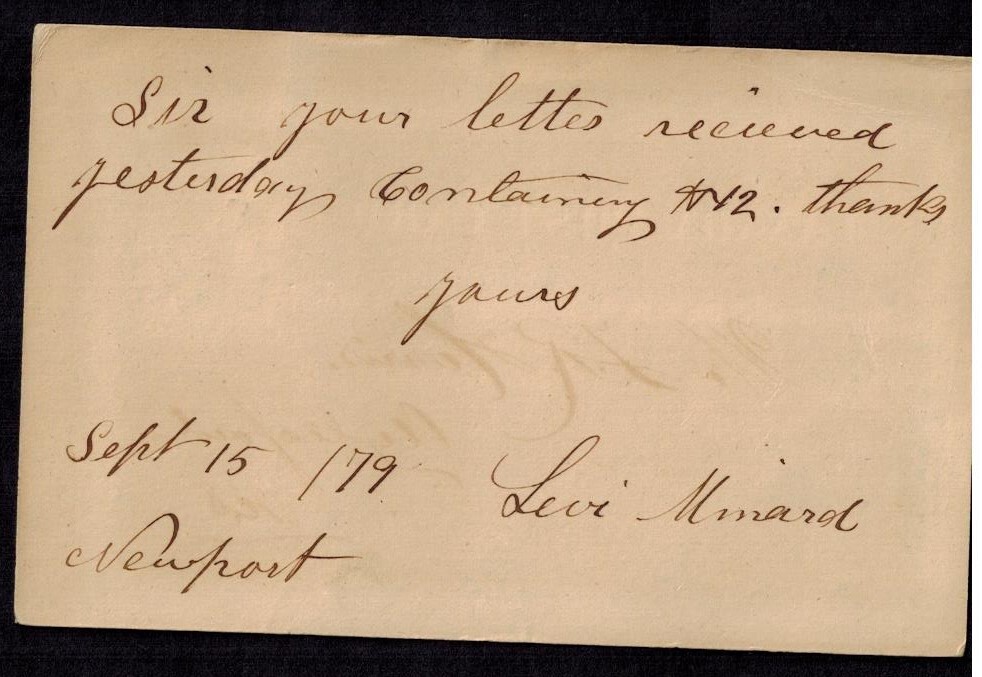 Sir your letter recieved
yesterday Containing $12. thanks
yours
Sept 15 /79
Levi Minard
Newport